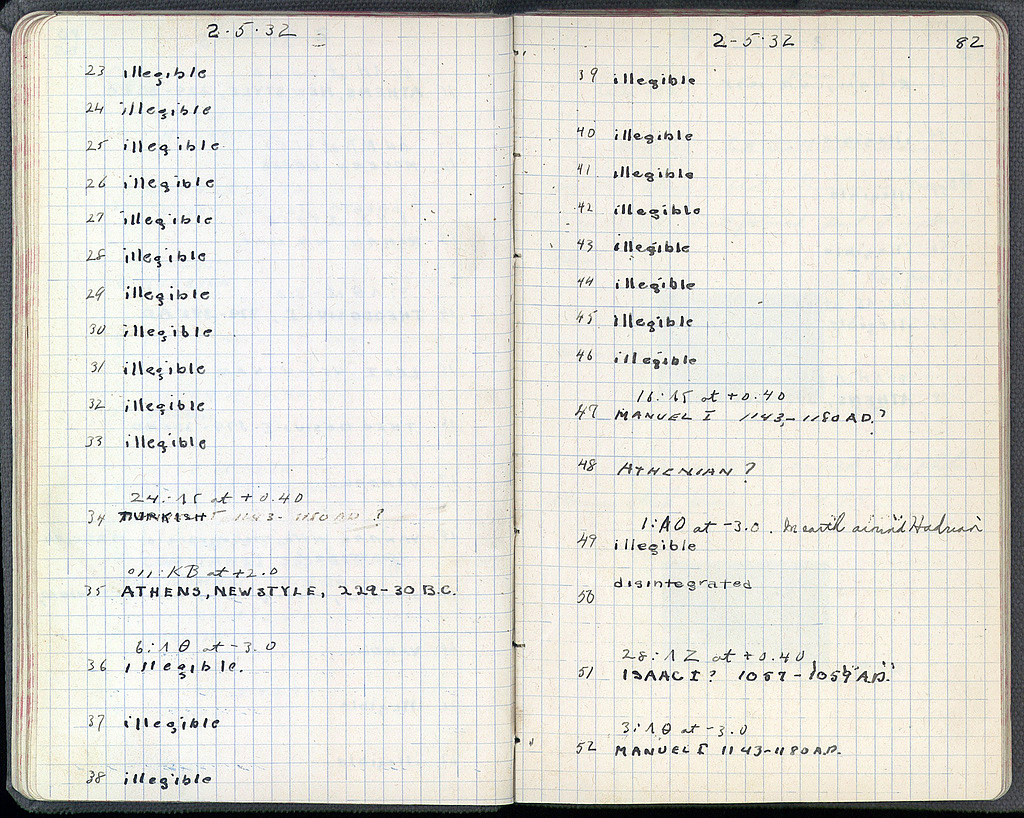 2-5-32
23 illegible
24 illegible
25 illegible
26 illegible
27 illegible
28 illegible
29 illegible
30 illegible
31 illegible
32 illegible
33 illegible
24:ΛΓ at +0.40
34 TURKISH 1143-1180 AD ?
011:KB at +2.0
35 ATHENS, NEW STYLE, 229-30 B.C.
6:ΛΘ at -3.0
36 illegible.
37 illegible
38 illegible
2-5-32 82
39 illegible
40 illegible
41 illegible
42 illegible
43 illegible
44 illegible
45 illegible
46 illegible
at +0.40
47 MANUEL I 1143-1180 AD.?
48 ATHENIAN ?
1:ΛΘ at -3.0. In earth around Hadrian
49 illegible
disintegrated
50
28:ΛΖ at +0.40
51 ISAAC I? 1057-1059 A.D.
3:ΛΘ at -3.0
52 MANUEL I 1143-1180 A.D.